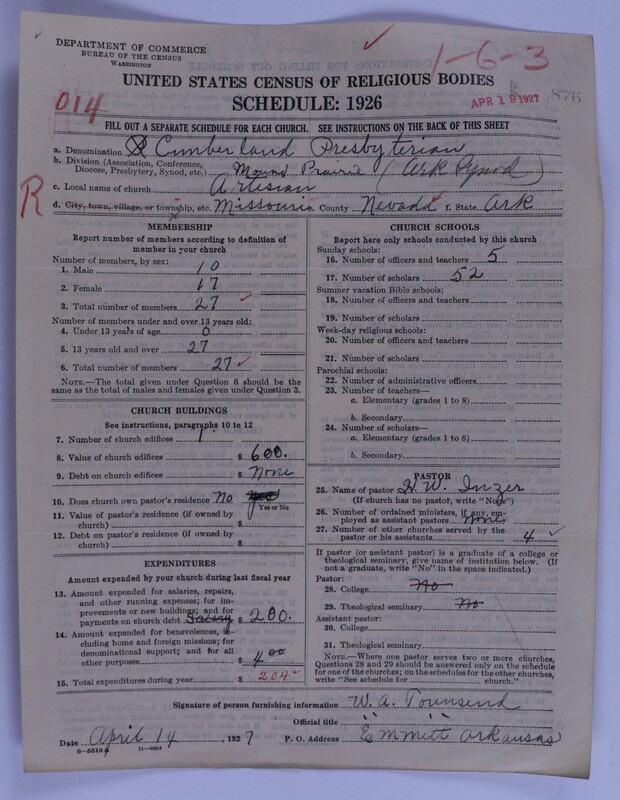 DEPARTMENT OF COMMERCE
BUREAU OF THE CENSUS
WASHINGTON
1-6-3
UNITED STATES CENSUS OF RELIGIOUS BODIES
SCHEDULE: 1926
014
APR 19 1927
876
FILL OUT A SEPARATE SCHEDULE FOR EACH CHURCH. SEE INSTRUCTIONS ON THE BACK OF THIS SHEET
a. Denomination Cumberland Presbyterian
b. Division (Association, Conference, Diocese, Presbytery, Synod, etc.) Mound Prairie (Ark Synod)
c. Local name of church Artesian
R
d. City, town, village, or township, etc. Missouri e. County Nevada f. State Ark
MEMBERSHIP
Report number of members according to definition of
member in your church
Number of members, by sex:
1. Male 10
2. Female 17
3. Total number of members 27
Number of members under and over 13 years old:
4. Under 13 years of age 0
5. 13 years old and over 27
6. Total number of members 27
NOTE.—The total given under Question 6 should be
same as the total of males and females given under Question 3.
CHURCH BUILDINGS
See instructions, paragraphs 10 to 12
7. Number of church edifices 1
8. Value of church edifices $ 600.
9. Debt on church edifices $ None
10. Does church own pastor's residence No
Yes or No
11. Value of pastor's residence (if owned by
church) $
12. Debt on pastor's residence (if owned by
church) $
EXPENDITURES
Amount expended by your church during last fiscal year
13. Amount expended for salaries, repairs,
and other running expenses; for im-
provements or new buildings; and for
payments on church debt Salary $ 200.
14. Amount expended for benevolences, in-
cluding home and foreign missions; for
denominational support; and for all
other purposes $ 4.00
15. Total expenditures during year $ 204
CHURCH SCHOOLS
Report here only schools conducted by this church
Sunday schools:
16. Number of officers and teachers 5
17. Number of scholars 52
Summer vacation Bible schools:
18. Number of officers and teachers
19. Number of scholars
Week-day religious schools:
20. Number of officers and teachers
21. Number of scholars
Parochial schools:
22. Number of administrative officers
23. Number of teachers—
a. Elementary (grades 1 to 8)
b. Secondary
24. Number of scholars—
a. Elementary (grades 1 to 8)
b. Secondary
PASTOR
25. Name of pastor H. W. Inzer
(If church has no pastor, write "None")
26. Number of ordained ministers, if any, em-
ployed as assistant pastors None
27. Number of other churches served by the
pastor or his assistants 4
If pastor (or assistant pastor) is a graduate of a college or
theological seminary, give name of institution below. (If
not a graduate, write "No" in the space indicated.)
Pastor:
28. College No
29. Theological seminary No
Assistant pastor:
30. College
31. Theological seminary
NOTE.—Where one pastor serves two or more churches,
Questions 28 and 29 should be answered only on the schedule
for one of the churches; on the schedules for the other churches,
write "See schedule for church."
Signature of person furnishing information W. A. Townsend
Official title " "
Date April 14, 1927 P. O. Address Emmitt Arkansas
8-5318a 11-9024